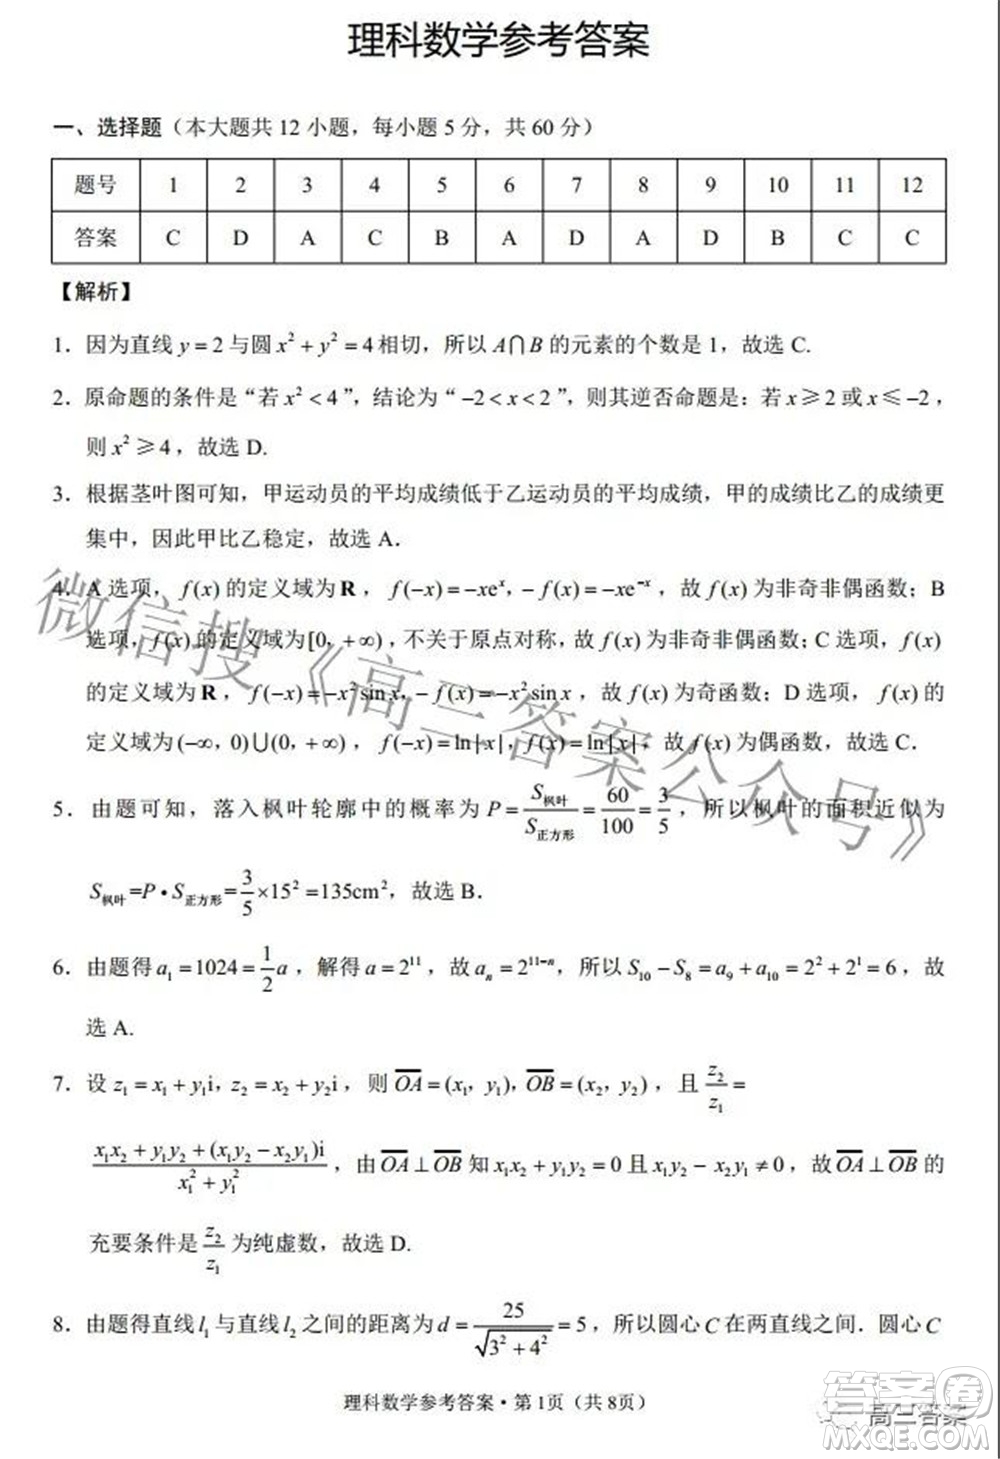 理科数学参考答案
一、选择题（本大题共 12 小题，每小题 5 分，共 60 分）
题号 1 2 3 4 5 6 7 8 9 10 11 12
答案 C D A C B A D A D B C C
【解析】
1．因为直线 y=2 与圆 x²+y²=4 相切，所以 A∩B 的元素的个数是 1，故选 C.
2．原命题的条件是“若 x²<4”，结论为“−2<x<2”，则其逆否命题是：若 x≥2 或 x≤−2，
则 x²≥4，故选 D.
3．根据茎叶图可知，甲运动员的平均成绩低于乙运动员的平均成绩，甲的成绩比乙的成绩更
集中，因此甲比乙稳定，故选 A．
4．A 选项，f(x) 的定义域为 R，f(−x)=−xeˣ，−f(x)=−xe⁻ˣ，故 f(x) 为非奇非偶函数；B
选项，f(x) 的定义域为[0，+∞)，不关于原点对称，故 f(x) 为非奇非偶函数；C 选项，f(x)
的定义域为 R，f(−x)=−x²sin x，−f(x)=−x²sin x，故 f(x) 为奇函数；D 选项，f(x) 的
定义域为(−∞，0)∪(0，+∞)，f(−x)=ln|x|，f(x)=ln|x|，故 f(x) 为偶函数，故选 C．
5．由题可知，落入枫叶轮廓中的概率为 P=S枫叶/S正方形=60/100=3/5，所以枫叶的面积近似为
S枫叶=P•S正方形=3/5×15²=135cm²，故选 B．
6．由题得 a₁=1024=1/2a，解得 a=2¹¹，故 aₙ=2¹¹⁻ⁿ，所以 S₁₀−S₈=a₉+a₁₀=2²+2¹=6，故
选 A.
7．设 z₁=x₁+y₁i，z₂=x₂+y₂i，则 \overline{OA}=(x₁，y₁)，\overline{OB}=(x₂，y₂)，且 z₂/z₁=
(x₁x₂+y₁y₂+(x₁y₂−x₂y₁)i)/(x₁²+y₁²)，由 \overline{OA}⊥\overline{OB} 知 x₁x₂+y₁y₂=0 且 x₁y₂−x₂y₁≠0，故 \overline{OA}⊥\overline{OB} 的
充要条件是 z₂/z₁ 为纯虚数，故选 D.
8．由题得直线 l₁ 与直线 l₂ 之间的距离为 d=25/√(3²+4²)=5，所以圆心 C 在两直线之间．圆心 C
理科数学参考答案·第 1页（共 8页）
微信搜《高三答案公众号》
答案卷
高三答案
MXQE.COM